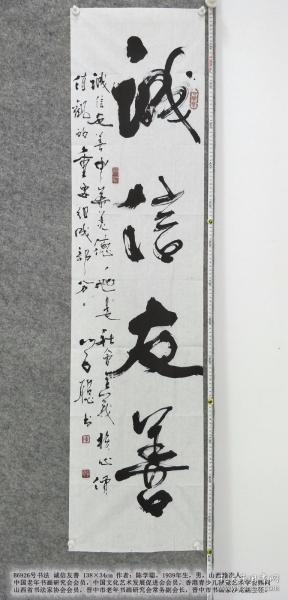 诚信友善
诚信友善中华美德,也是社会主义核心价
值观的重要组成部分。
86926号书法 诚信友善 138×34cm 作者：陈学聪，1939年生，男，山西
中国老年书画研究会会员，中国文化艺术发展促进会会员，香港青少儿
山西省书法家协会会员，晋中市老年书画研究会常务副会长，晋中市